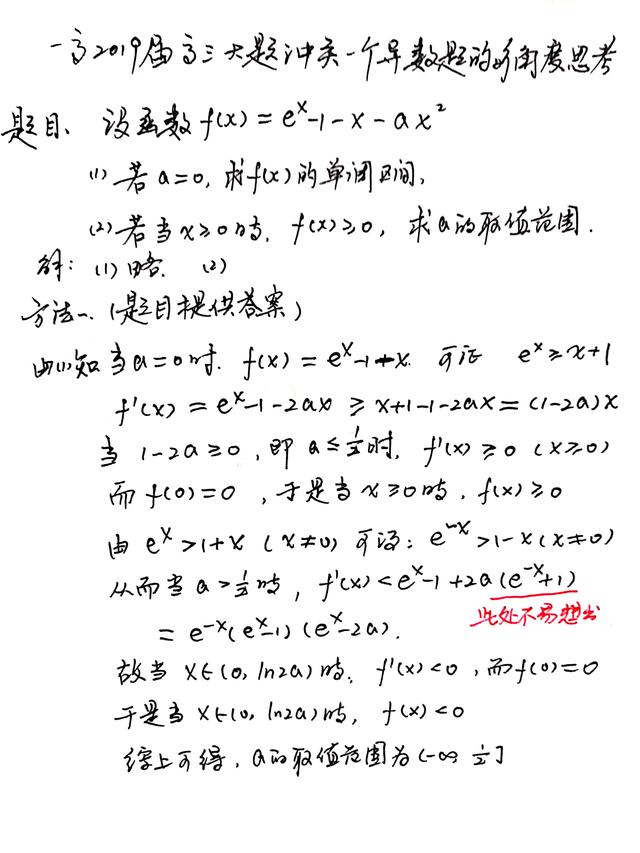 一高2019届高三大题冲关一个导数题的多角度思考
题目、设函数 f(x) = eˣ-1-x-ax²
(1) 若 a=0, 求f(x)的单调区间,
(2) 若当x≥0时, f(x)≥0, 求a的取值范围.
解: (1) 略. (2)
方法一、(题目提供答案)
由(1)知当a=0时. f(x) = eˣ-1-x. 可证 eˣ≥x+1
f'(x) = eˣ-1-2ax ≥ x+1-1-2ax = (1-2a)x
当 1-2a≥0, 即 a≤1/2时, f'(x)≥0 (x≥0)
而 f(0)=0, 于是当 x≥0时, f(x)≥0
由 eˣ>1+x (x≠0) 可得: e⁻ˣ>1-x (x≠0)
从而当 a>1/2时, f'(x)<eˣ-1+2a(e⁻ˣ+1)
此处不易想出
= e⁻ˣ(eˣ-1)(eˣ-2a).
故当 x∈(0, ln2a)时, f'(x)<0, 而f(0)=0
于是当 x∈(0, ln2a)时, f(x)<0
综上可得, a的取值范围为(-∞, 1/2]